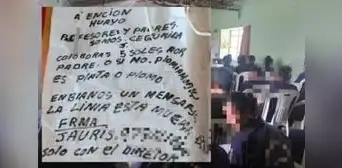 ATENCION
HUAYO
PROFESORES Y PADRES.
SOMOS. SEGUNDA
COLOBORAS 5 SOLES POR
PADRE. O SI NO. PLOMIAMOS
ES PLATA O PLOMO.
ENBIANOS UN MENSAJE
LA LINIA ESTA MUERA
FRMA
JAURIS. 97
SOLO CON EL DIRETOR